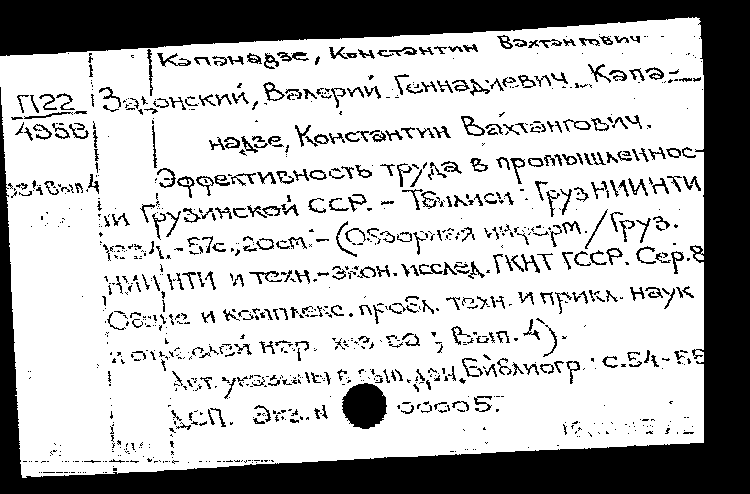 Капанадзе, Константин Вахтангович
П22 Задонский, Валерий Геннадиевич, Капа-
4958
надзе, Константин Вахтангович.
Эффективность труда в промышленнос-
984 вып.4
ти Грузинской ССР. - Тбилиси: ГрузНИИНТИ,
1984. - 57с., 20см. - (Обзорная информ. / Груз.
НИИНТИ и техн.-экон. исслед. ГКНТ ГССР. Сер.8
Общие и комплекс. пробл. техн. и прикл. наук
и отраслей нар. хоз-ва; Вып. 4).
Авт. указаны в вып. дан. Библиогр.: с.54-55
ДСП. Экз. N 00005.